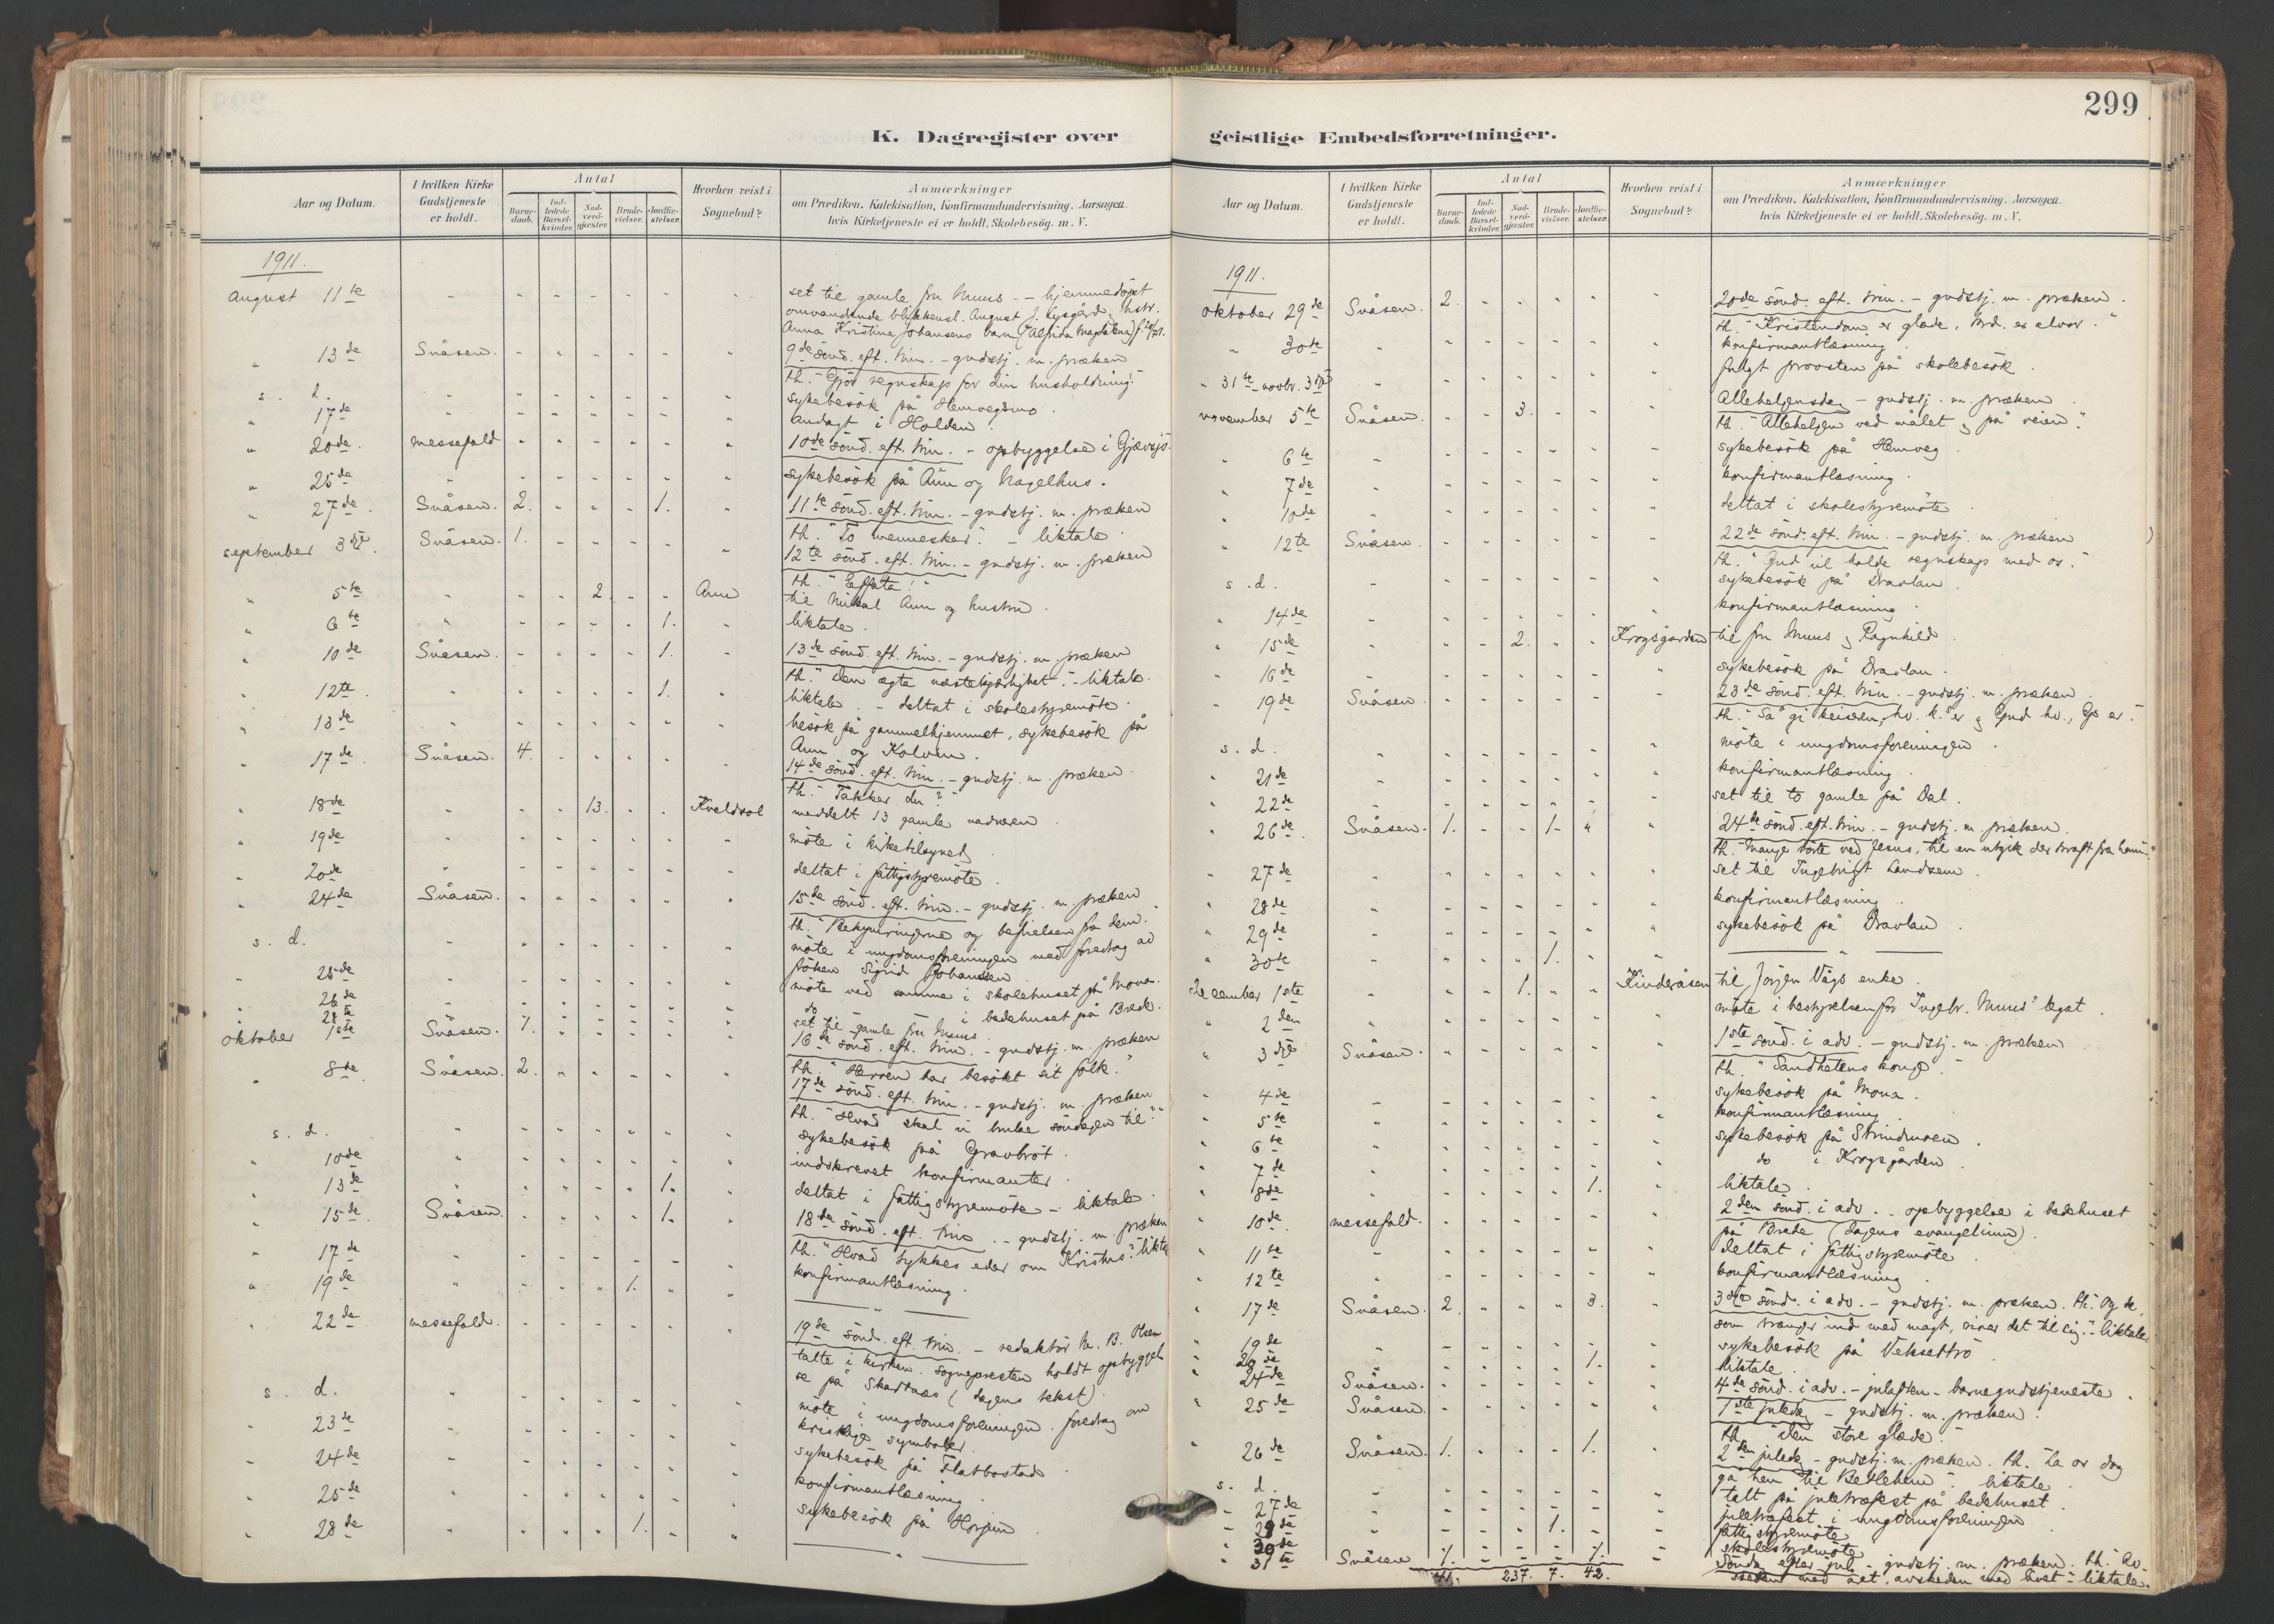 299
K. Dagregister over
geistlige Embedsforretninger.
Aar og Datum.
I hvilken Kirke Gudstjeneste er holdt.
Antal
Barne-daab.
Ind-ledede Barsel-kvinder.
Nad-verd-gjæster.
Brude-vielser.
Jordfæ-stelser.
Hvorhen reist i Sognebud?
Anmærkninger
om Prædiken, Katekisation, Konfirmandundervisning. Aarsagen.
hvis Kirketjeneste ei er holdt, Skolebesög. m. V.
1911.
August 11te set til gamle fru Muus. - hjemmedøpt
omvandrende blikkensl. August J. Lysgård, hstr.
Anna Kristina Johansens barn (Alfrida Magdalena)
" 13de Snåsen. 9de sønd. eft. trin. - gudstj. m. præken
th. "Gjør regnskap for din husholdning!"
s. d. sykebesøk på Hemvegsmo.
" 17de andagt i Holden.
" 20de. messefald 10de sønd. eft. trin. - opbyggelse i Gjævsjø.
" 25de sykebesøk på Aun og Nagelhus.
" 27de. Snåsen. 2. 1. 11te sønd. eft. trin. - gudstj. m. præken
th. "To mennesker." - liktale.
september 3die. Snåsen. 1. 12te sønd. eft. trin. - gudstj. m. præken
th. "Effata!"
" 5te 2. Aun til Mikal Aun og hustru.
" 6te 1. liktale.
" 10de Snåsen. 1. 13de sønd. eft. trin. - gudstj. m. præken
th. "Den ægte næstekjærlighet." - liktale.
" 12te. 1. liktale. - deltat i skolestyremøte.
" 13de besøk på gammelhjemmet, sykebesøk på
Aun og Kolven.
" 17de Snåsen. 4. 14de sønd. eft. trin. - gudstj. m. præken
th. "Takker du?"
" 18de 13. Kveldsol meddelt 13 gamle nadveren.
" 19de møte i kirketilsynet
" 20de deltat i fattigstyremøte.
" 24de Snåsen. 15de sønd. eft. trin. - gudstj. m. præken
th. "Bekymringerne og befrielsen fra dem."
s. d. møte i ungdomsforeningen med foredrag av
frøken Sigrid Johansen
" 25de møte ved samme i skolehuset på Mona.
" 26de do i bedehuset på Brede.
" 28de set til gamle fru Muus.
oktober 1ste Snåsen. 1. 16de sønd. eft. trin. - gudstj. m. præken
th. "Herren har besøkt sit folk."
" 8de Snåsen. 2. 17de sønd. eft. trin. - gudstj. m. præken
th. "Hvad skal vi bruke søndagen til?"
s. d. sykebesøk på Gravbrøt.
" 10de indskrevet konfirmanter.
" 13de 1. deltat i fattigstyremøte - liktale.
" 15de. Snåsen. 1. 18de sønd. eft. trin. - gudstj. m. præken
th. "Hvad tykkes eder om Kristus?" liktale
" 17de konfirmantlæsning.
" 19de 1. "
" 22de messefald. 19de sønd. eft. trin. - redaktør M. B. Olsen
talte i kirken. sognepresten holdt opbyggel
se på Skartnes (dagens tekst).
s. d. møte i ungdomsforeningen. foredrag om
kristelige symboler.
" 23de sykebesøk på Flatbostad.
" 24de konfirmantlæsning.
" 25de sykebesøk på Horjem.
" 28de 1. "
Aar og Datum.
I hvilken Kirke Gudstjeneste er holdt.
Antal
Barne-daab.
Ind-ledede Barsel-kvinder.
Nad-verd-gjæster.
Brude-vielser.
Jordfæ-stelser.
Hvorhen reist i Sognebud?
Anmærkninger
om Prædiken, Katekisation, Konfirmandundervisning. Aarsagen.
hvis Kirketjeneste ei er holdt. Skolebesög. m. V.
1911.
oktober 29de Snåsen. 2. 20de sønd. eft. trin. - gudstj. m. præken.
th. "Kristendom er glæde, krd. er alvor."
" 30te konfirmantlæsning.
" 31te - novbr. 3die fulgt provsten på skolebesøk.
november 5te Snåsen. 3. Allehelgensdag - gudstj. m. præken.
th. "Allehelgen ved målet og på veien."
" 6te sykebesøk på Hemveg.
" 7de konfirmantlæsning.
" 10de deltat i skolestyremøte.
" 12te Snåsen. 22de sønd. eft. trin. - gudstj. m. præken
th. "Gud vil holde regnskap med os."
s. d. sykebesøk på Dravlan.
" 14de konfirmantlæsning.
" 15de 2. Krogsgården til fru Muus og Ragnhild.
" 16de sykebesøk på Dravlan.
" 19de Snåsen. 23de sønd. eft. trin. - gudstj. m. præken.
th. "Så gi keiseren, hv. k.s er og Gud hv., Gs er."
s. d. møte i ungdomsforeningen.
" 21de konfirmantlæsning.
" 22de set til to gamle på Dal.
" 26de. Snåsen. 1. 1. 24de sønd. eft. trin. - gudstj. m. præken.
th. "Mange rørte ved Jesus, til en utgik der kraft fra ham."
" 27de set til Ingebrigt Landsem.
" 28de konfirmantlæsning.
" 29de sykebesøk på Dravlan.
" 30te 1. "
December 1ste 1. Kinderåsen til Jørgen Vågs enke.
" 2den møte i bestyrelsen for Ingebr. Muus' legat.
" 3die Snåsen. 1ste sønd. i adv. - gudstj. m. præken.
th. "Sandhetens konge."
" 4de sykebesøk på Mona.
" 5te konfirmantlæsning.
" 6te sykebesøk på Strindmoen.
" 7de do i Krogsgården.
" 8de 1. liktale.
" 10de messefald. 2den sønd. i adv. - opbyggelse i bedehuset
på Brede (dagens evangelium).
" 11te deltat i fattigstyremøte.
" 12te konfirmantlæsning.
" 17de Snåsen. 2. 3. 3die sønd. i adv. - gudstj. m. præken. th. "Og de,
som trænger ind med magt, river det til sig." - liktaler.
" 19de sykebesøk på Veksettrø.
" 20de 1. liktale.
" 24de Snåsen. 4de sønd. i adv. - julaften - barnegudstjeneste.
" 25de Snåsen. 1ste juledag - gudstj. m. præken.
th. "Den store glæde."
" 26de Snåsen. 1. 1. 2den juledag - gudstj. m. præken. th. "La os dog
gå hen til Betlehem." liktale.
s. d. talt på juletræfest på bedehuset.
" 27de juletræfest i ungdomsforeningen
" 29de 1. fattigstyremøte
" 30de skolestyremøte
" 31te Snåsen 1. 1. Sønda. efter jul - gudstj. m. præken. th. "Av-
skeden med året, avskeden med livet" - liktale.
41. 237. 7. 42.